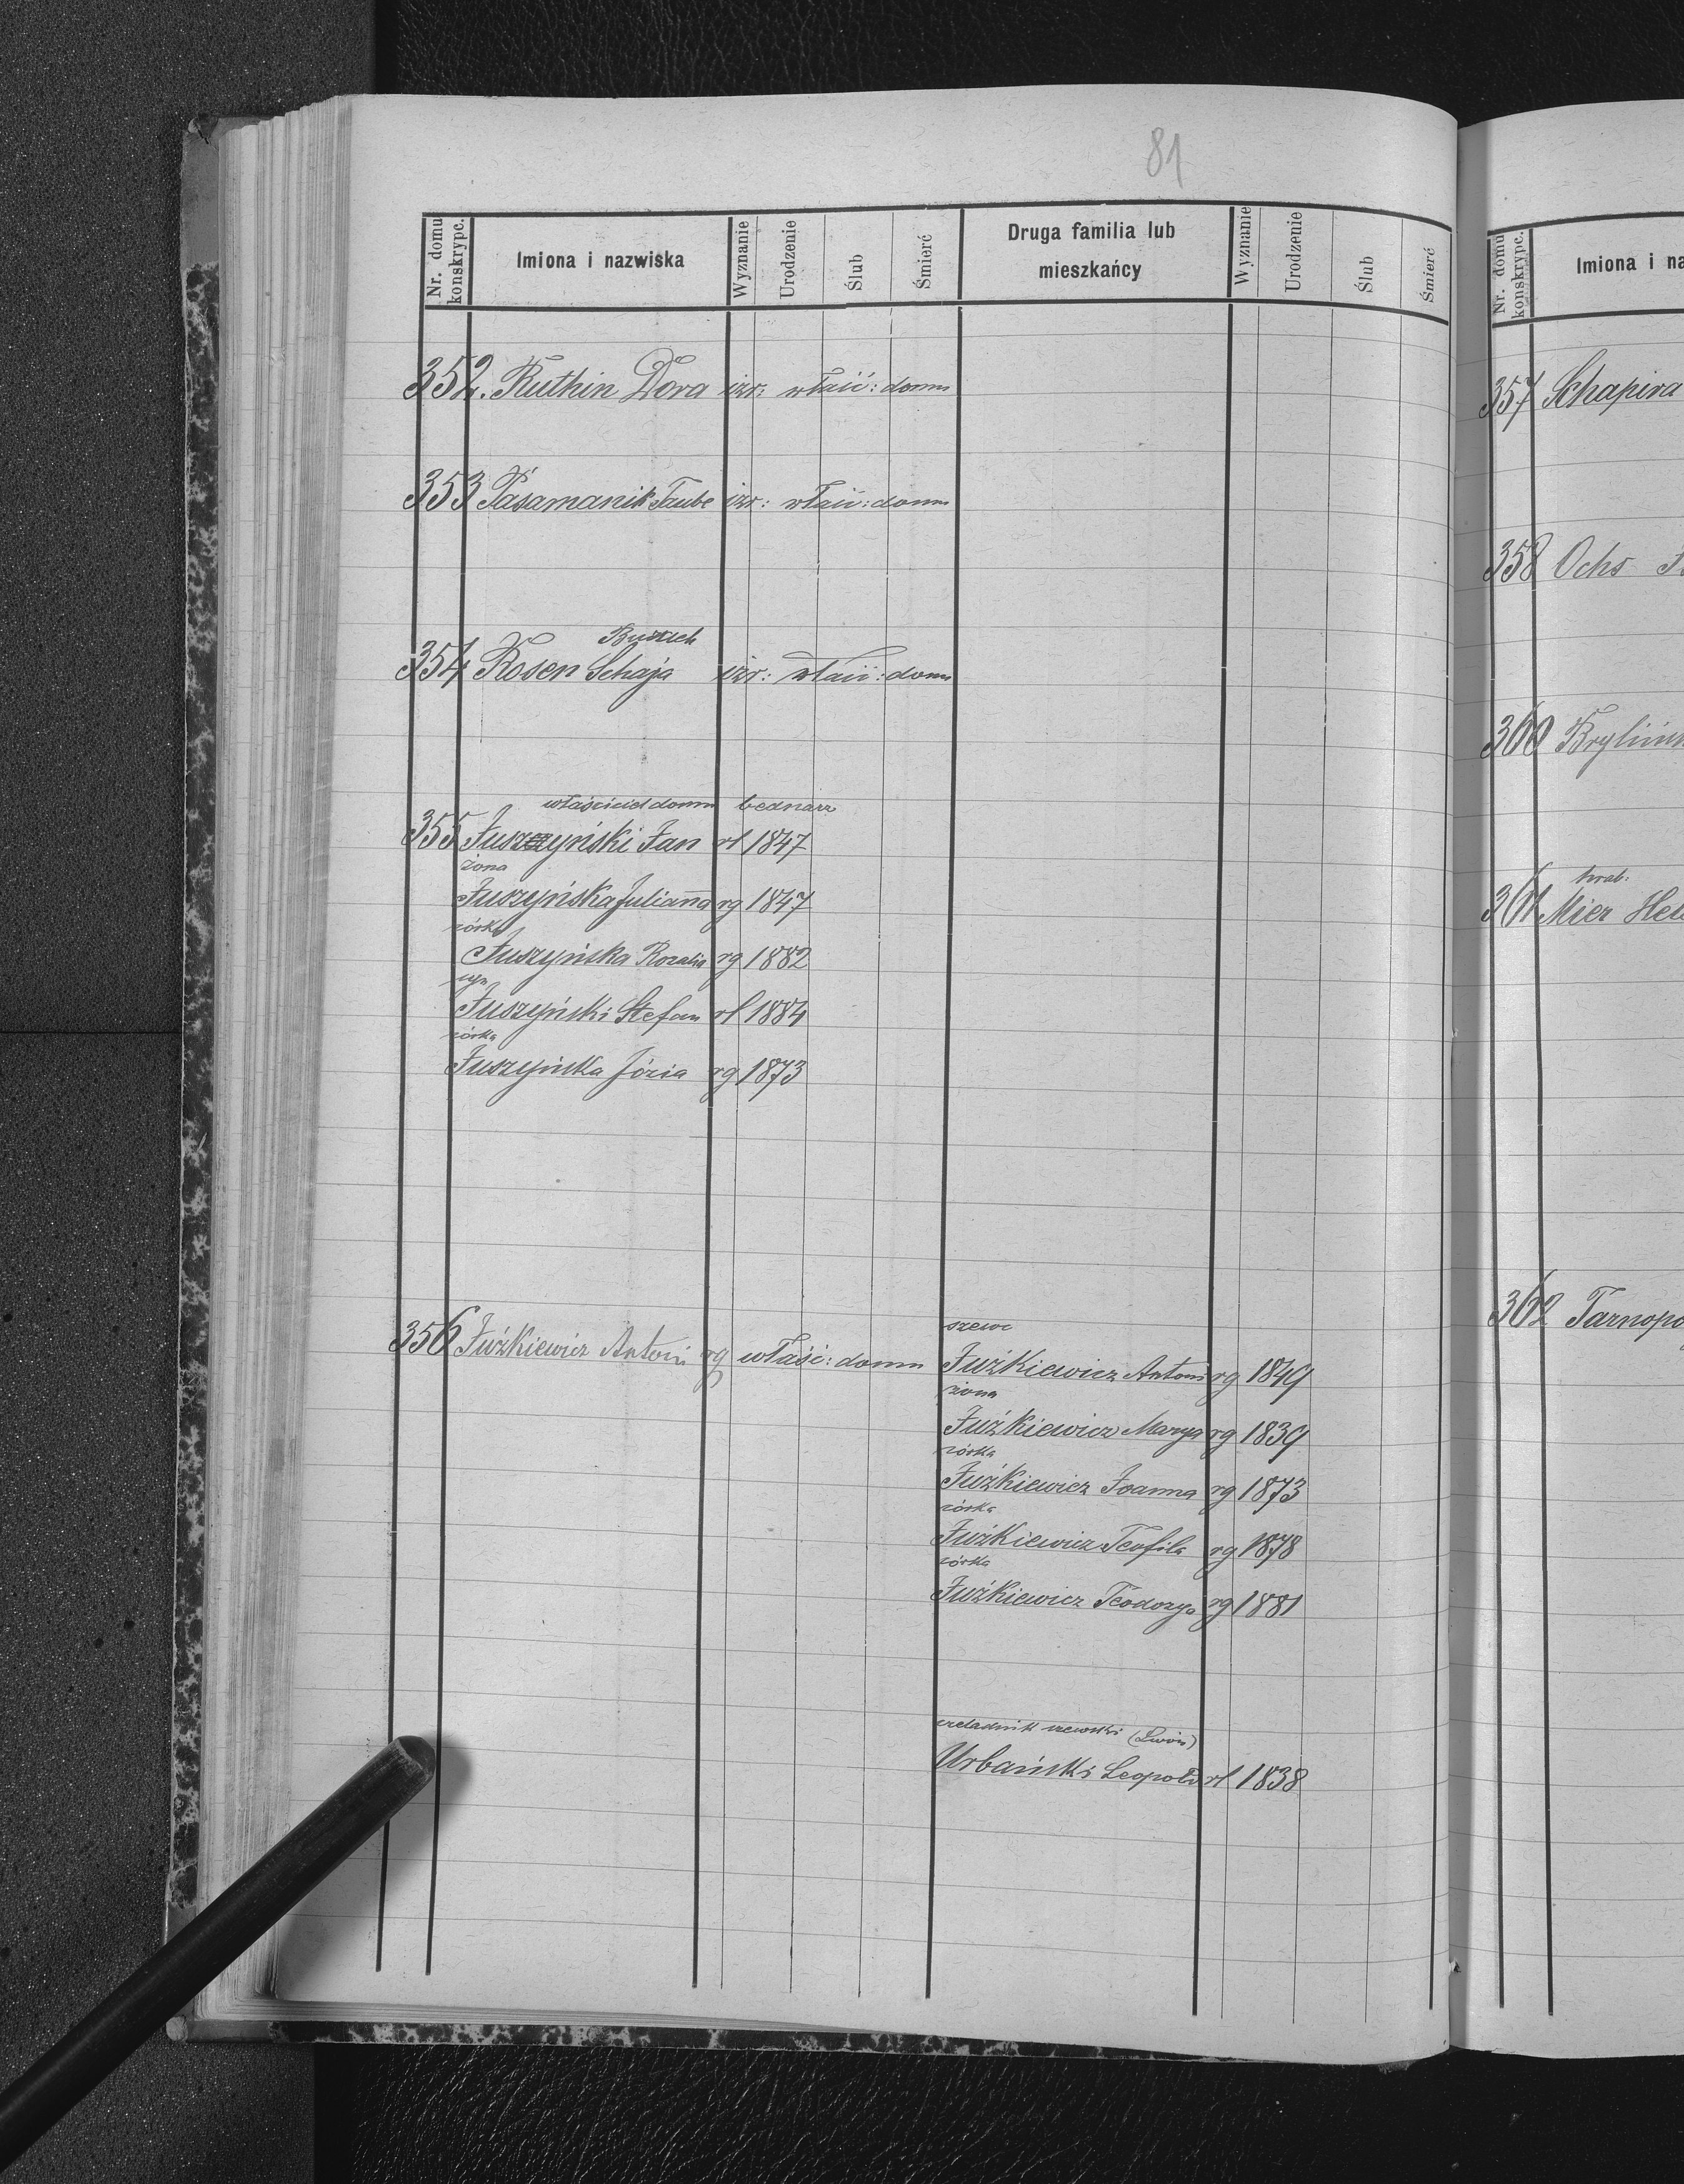 81
Nr. domu konskrypc. Imiona i nazwiska Wyznanie Urodzenie Ślub Śmierć Druga familia lub mieszkańcy Wyznanie Urodzenie Ślub Śmierć
352. Ruthin Dora izr: właść: domu
353 Pasamanik Taube izr: właść: domu
354 Rosen Schaja izr: właść: domu
właściciel domu bednarz
355 Juszyński Jan rł 1847
żona
Juszyńska Julianna rg 1847
córka
Juszyńska Rozalia rg 1882
syn
Juszyński Stefan rł 1884
córka
Juszyńska Józia rg 1873
356 Juźkiewicz Antoni rg właść: domu
szewc
Juźkiewicz Antoni rg 1849
żona
Juźkiewicz Marya rg 1839
córka
Juźkiewicz Joanna rg 1873
córka
Juźkiewicz Teofila rg 1878
córka
Juźkiewicz Teodozya rg 1881
czeladnik szewski (Lwów)
Urbański Leopold rł 1838
Nr. domu konskrypc. Imiona i na
357 Schapira
358 Ochs
360
hrab.
361 Mier Hele
362 Tarnopo